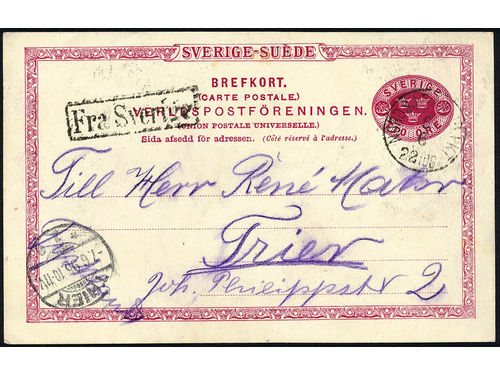 SVERIGE-SUÈDE
BREFKORT.
(CARTE POSTALE.)
VERLDSPOSTFÖRENINGEN.
(UNION POSTALE UNIVERSELLE.)
Sida afsedd för adressen. (Côté réservé à l'adresse.)
SVERIGE
Fra Sverige
Till Herr René
Trier
Joh. 2
TRIER